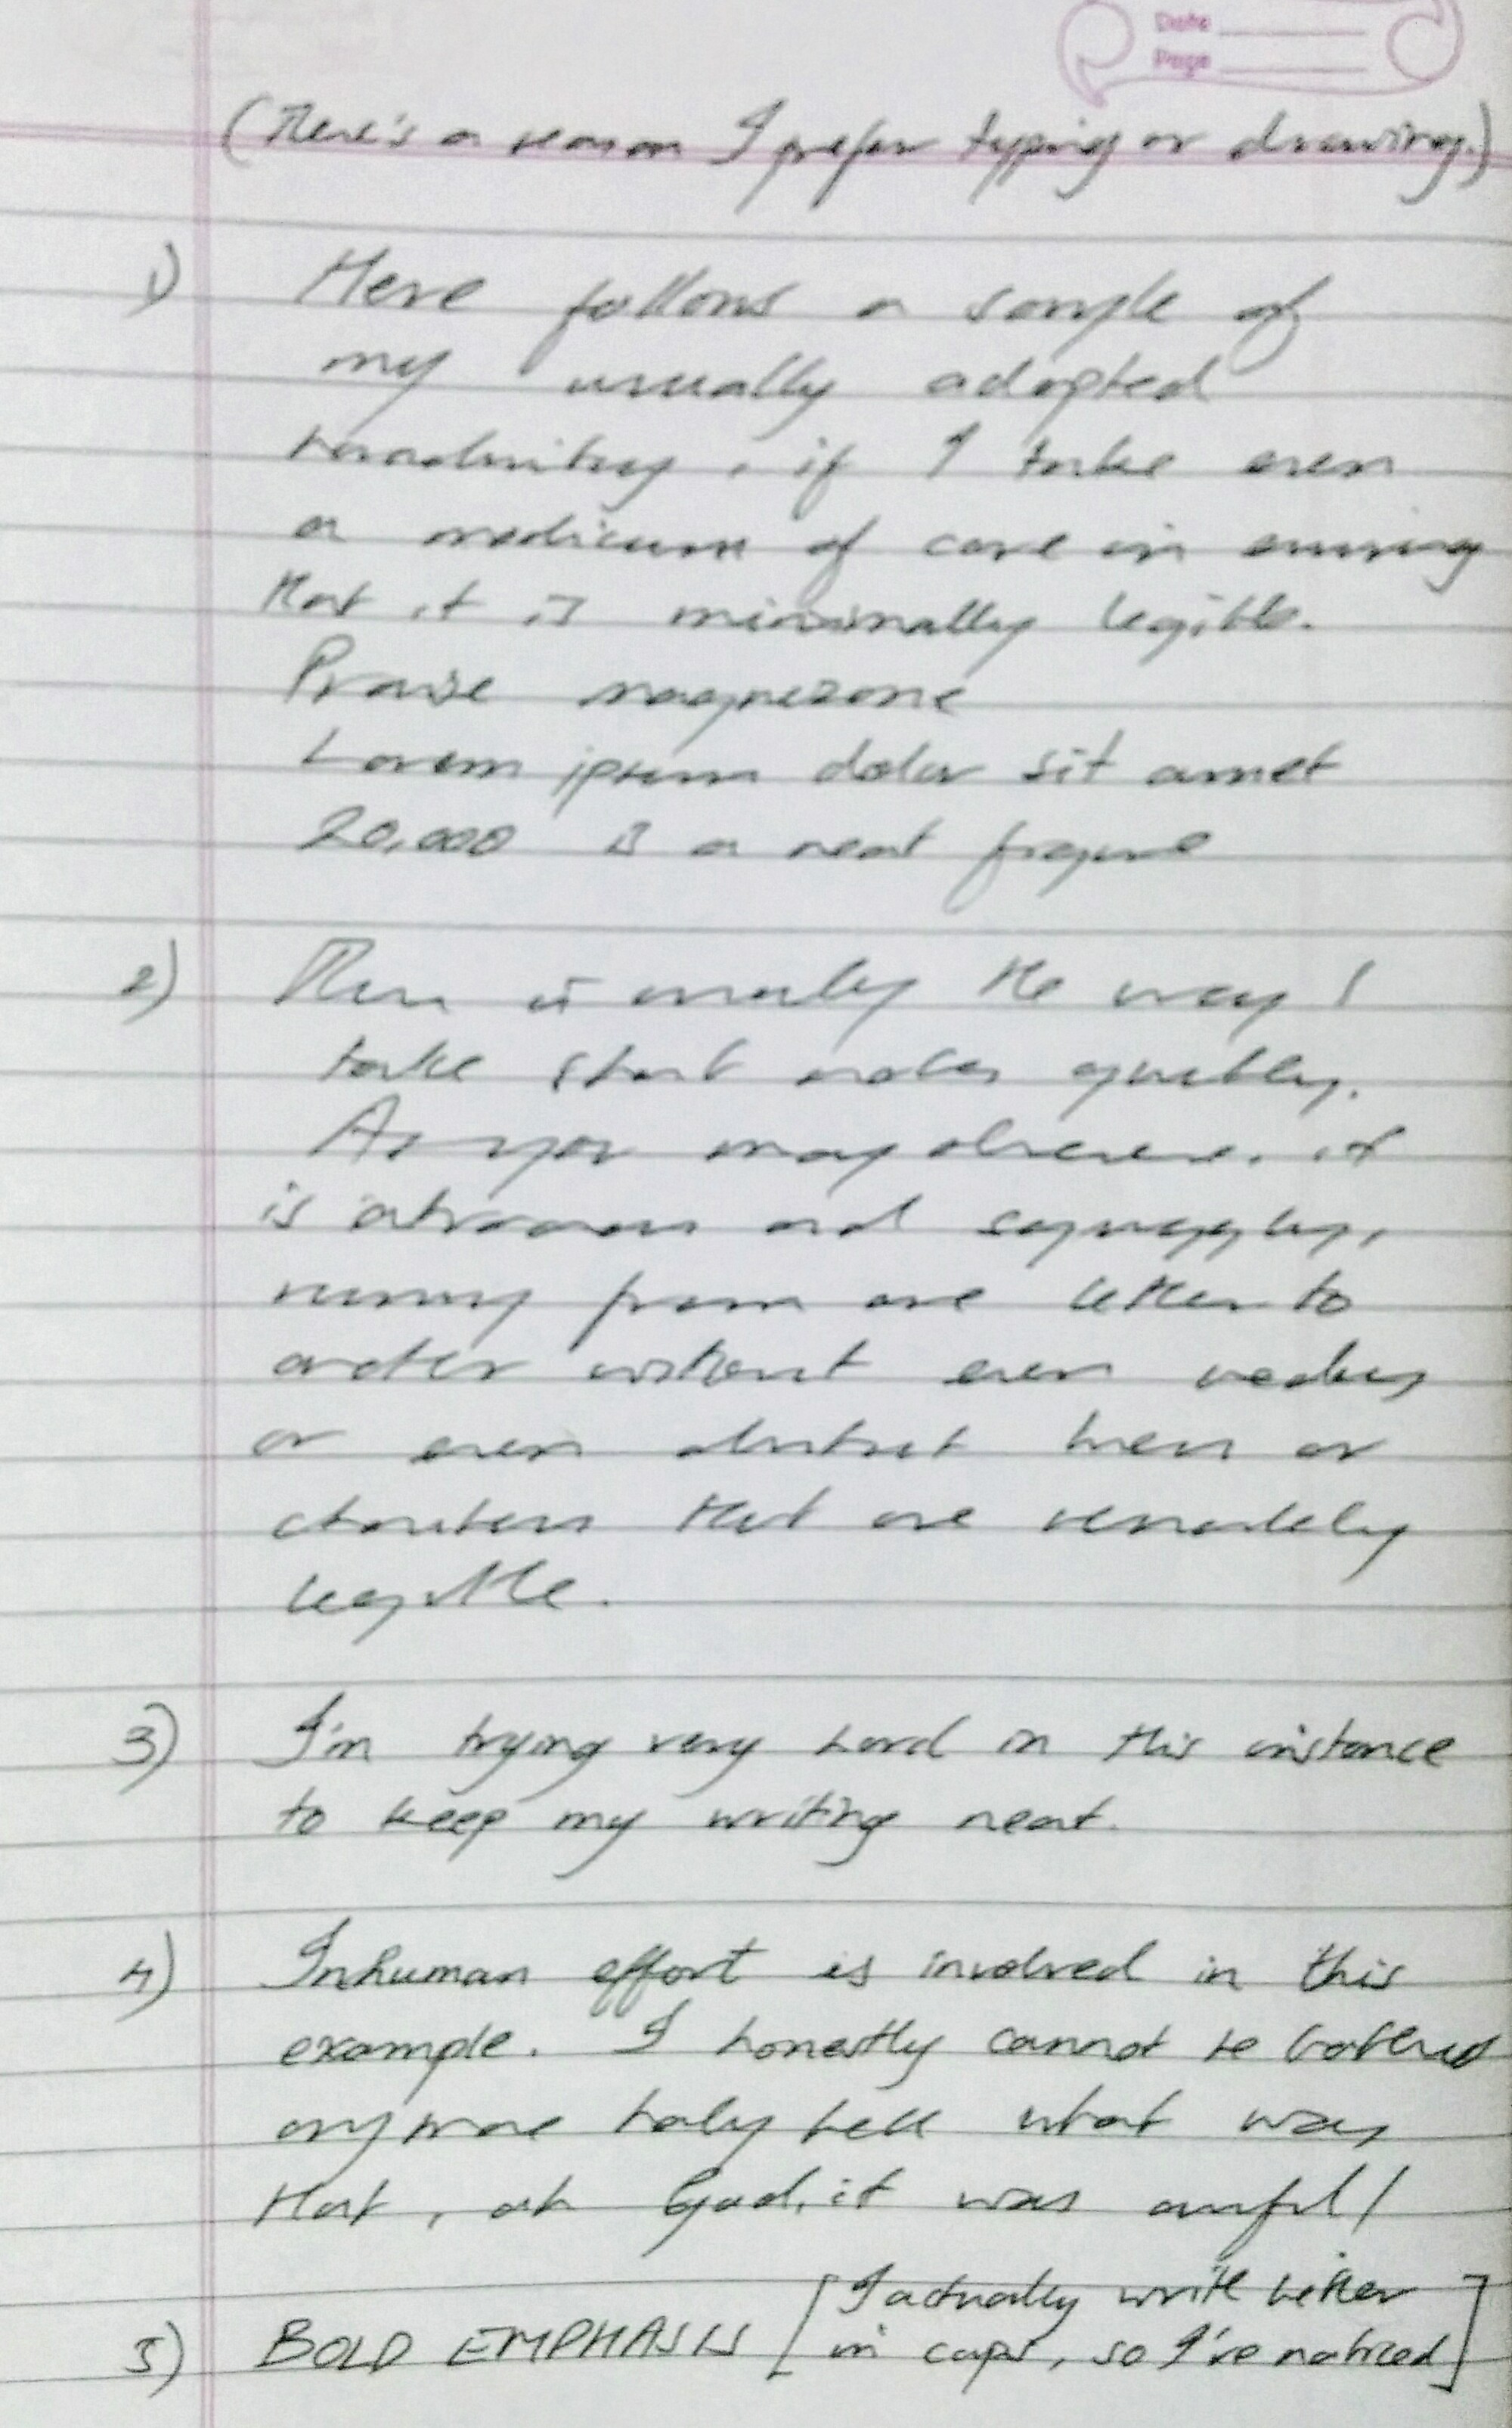 Date
Page
(There's a reason I prefer typing or drawing.)
1) Here follows a sample of
my usually adopted
handwriting, if I take even
a modicum of care in ensuring
that it is minimally legible.
Praise magnezone
Lorem ipsum dolor sit amet
20,000 is a neat figure
2) This is mostly the way I
take short notes quickly.
As you may observe, it
is atrocious and squiggly,
running from one letter to
another without even
or even distinct lines or
characters that are remotely
legible.
3) I'm trying very hard in this instance
to keep my writing neat.
4) Inhuman effort is involved in this
example. I honestly cannot be bothered
anymore holy hell what was
that, oh God, it was awful!
5) BOLD EMPHASIS [I actually write better
in caps, so I've noticed]